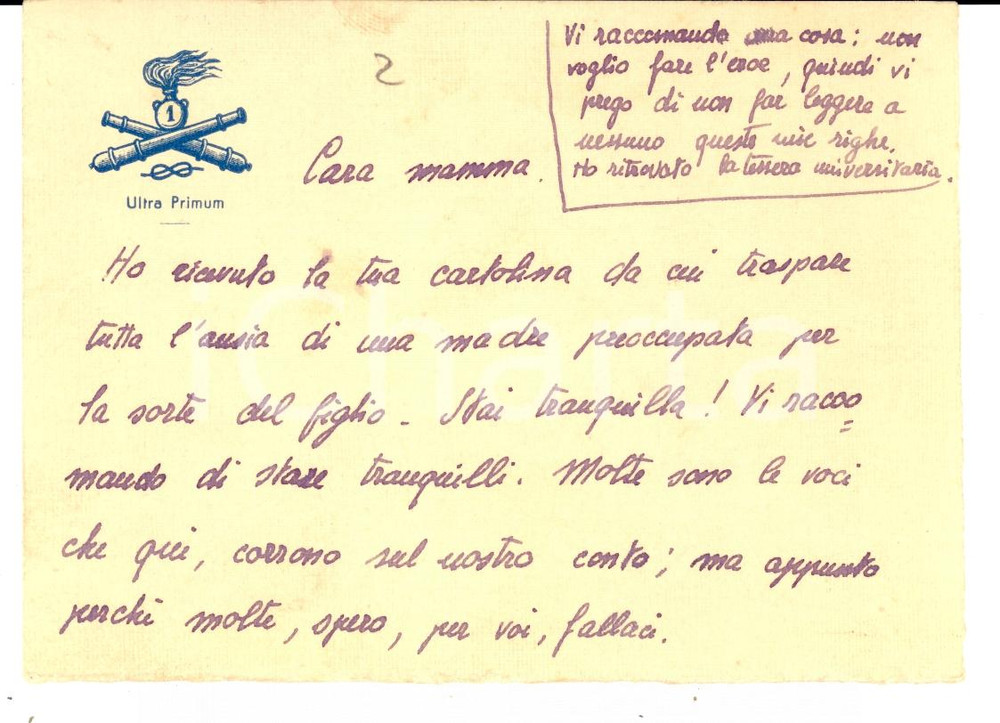 1
Ultra Primum
2
Vi raccomando una cosa: non
voglio fare l'eroe, quindi vi
prego di non far leggere a
nessuno queste mie righe.
Ho ritrovato la tessera universitaria.
Cara mamma.
Ho ricevuto la tua cartolina da cui traspare
tutta l'ansia di una madre preoccupata per
la sorte del figlio. Stai tranquilla! Vi racco=
mando di stare tranquilli. Molte sono le voci
che qui, corrono sul nostro conto; ma appunto
perchè molte, spero, per voi, fallaci.
iCharta